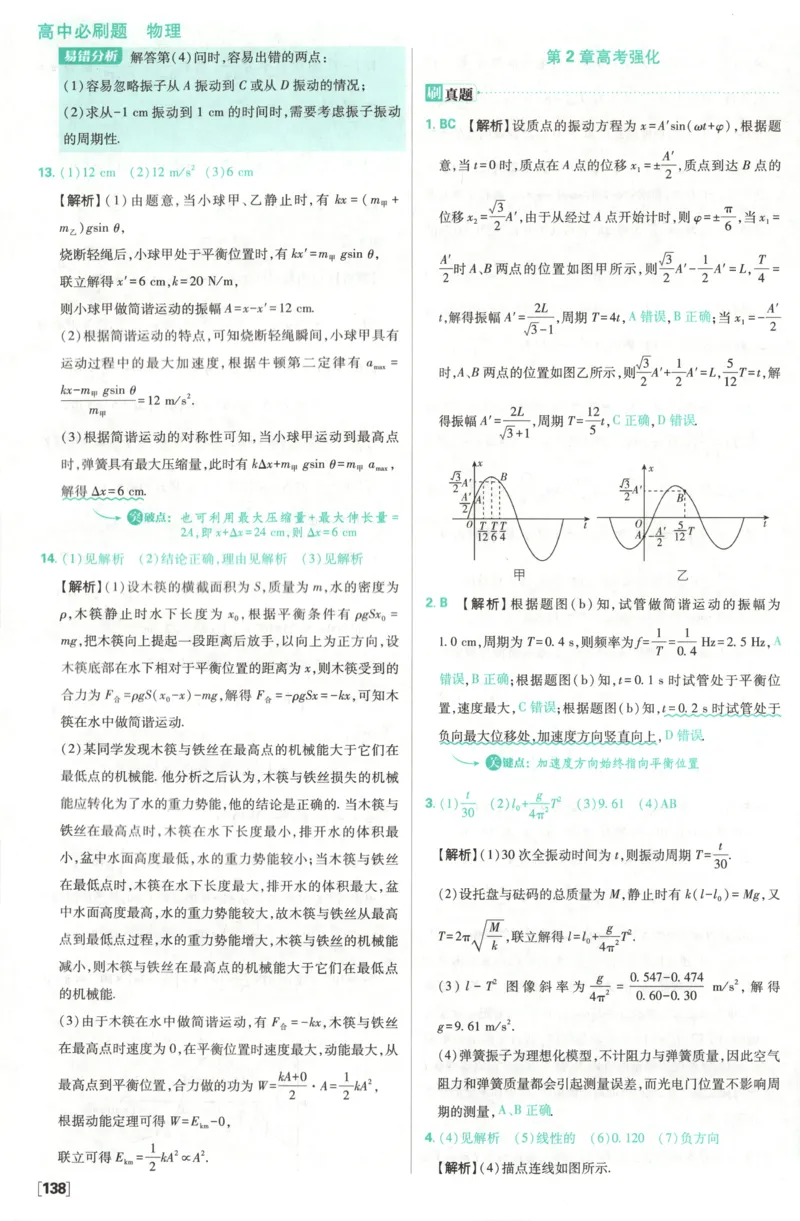 高中必刷题 物理
易错分析 解答第(4)问时,容易出错的两点:
(1)容易忽略振子从 A 振动到 C 或从 D 振动的情况;
(2)求从-1 cm 振动到 1 cm 的时间时,需要考虑振子振动
的周期性.
13. (1)12 cm (2)12 m/s² (3)6 cm
【解析】(1)由题意,当小球甲、乙静止时,有 kx=(m甲+
m乙)gsin θ,
烧断轻绳后,小球甲处于平衡位置时,有 kx′=m甲 gsin θ,
联立解得 x′=6 cm,k=20 N/m,
则小球甲做简谐运动的振幅 A=x-x′=12 cm.
(2)根据简谐运动的特点,可知烧断轻绳瞬间,小球甲具有
运动过程中的最大加速度,根据牛顿第二定律有 amax=
(kx-m甲 gsin θ)/m甲=12 m/s².
(3)根据简谐运动的对称性可知,当小球甲运动到最高点
时,弹簧具有最大压缩量,此时有 kΔx+m甲 gsin θ=m甲 amax,
解得 Δx=6 cm.
突破点: 也可利用最大压缩量+最大伸长量=
2A,即 x+Δx=24 cm,则 Δx=6 cm
14. (1)见解析 (2)结论正确,理由见解析 (3)见解析
【解析】(1)设木筷的横截面积为 S,质量为 m,水的密度为
ρ,木筷静止时水下长度为 x₀,根据平衡条件有 ρgSx₀=
mg,把木筷向上提起一段距离后放手,以向上为正方向,设
木筷底部在水下相对于平衡位置的距离为 x,则木筷受到的
合力为 F合=ρgS(x₀-x)-mg,解得 F合=-ρgSx=-kx,可知木
筷在水中做简谐运动.
(2)某同学发现木筷与铁丝在最高点的机械能大于它们在
最低点的机械能. 他分析之后认为,木筷与铁丝损失的机械
能应转化为了水的重力势能,他的结论是正确的. 当木筷与
铁丝在最高点时,木筷在水下长度最小,排开水的体积最
小,盆中水面高度最低,水的重力势能较小;当木筷与铁丝
在最低点时,木筷在水下长度最大,排开水的体积最大,盆
中水面高度最高,水的重力势能较大,故木筷与铁丝从最高
点到最低点过程,水的重力势能增大,木筷与铁丝的机械能
减小,则木筷与铁丝在最高点的机械能大于它们在最低点
的机械能.
(3)由于木筷在水中做简谐运动,有 F合=-kx,木筷与铁丝
在最高点时速度为 0,在平衡位置时速度最大,动能最大,从
最高点到平衡位置,合力做的功为 W=(kA+0)/2·A=1/2 kA²,
根据动能定理可得 W=Ekm-0,
联立可得 Ekm=1/2 kA²∝A².
[138]
第 2 章高考强化
刷 真题
1. BC 【解析】设质点的振动方程为 x=A′sin(ωt+φ),根据题
意,当 t=0 时,质点在 A 点的位移 x₁=±A′/2,质点到达 B 点的
位移 x₂=√3/2 A′,由于从经过 A 点开始计时,则 φ=±π/6,当 x₁=
A′/2 时 A、B 两点的位置如图甲所示,则 √3/2 A′-1/2 A′=L,T/4=
t,解得振幅 A′=2L/(√3-1),周期 T=4t,A 错误,B 正确;当 x₁=-A′/2
时,A、B 两点的位置如图乙所示,则 √3/2 A′+1/2 A′=L,5/12 T=t,解
得振幅 A′=2L/(√3+1),周期 T=12/5 t,C 正确,D 错误.
x √3/2 A′ A′/2 A B O T/12 T/6 T/4 t
甲
x √3/2 A′ B O A -A′/2 5/12 T t
乙
2. B 【解析】根据题图(b)知,试管做简谐运动的振幅为
1.0 cm,周期为 T=0.4 s,则频率为 f=1/T=1/0.4 Hz=2.5 Hz,A
错误,B 正确;根据题图(b)知,t=0.1 s 时试管处于平衡位
置,速度最大,C 错误;根据题图(b)知,t=0.2 s 时试管处于
负向最大位移处,加速度方向竖直向上,D 错误.
关键点: 加速度方向始终指向平衡位置
3. (1)t/30 (2)l₀+g/4π² T² (3)9.61 (4)AB
【解析】(1)30 次全振动时间为 t,则振动周期 T=t/30.
(2)设托盘与砝码的总质量为 M,静止时有 k(l-l₀)=Mg,又
T=2π√(M/k),联立解得 l=l₀+g/4π² T².
(3) l-T² 图像斜率为 g/4π²=(0.547-0.474)/(0.60-0.30) m/s²,解得
g=9.61 m/s².
(4)弹簧振子为理想化模型,不计阻力与弹簧质量,因此空气
阻力和弹簧质量都会引起测量误差,而光电门位置不影响周
期的测量,A、B 正确.
4. (4)见解析 (5)线性的 (6)0.120 (7)负方向
【解析】(4)描点连线如图所示.